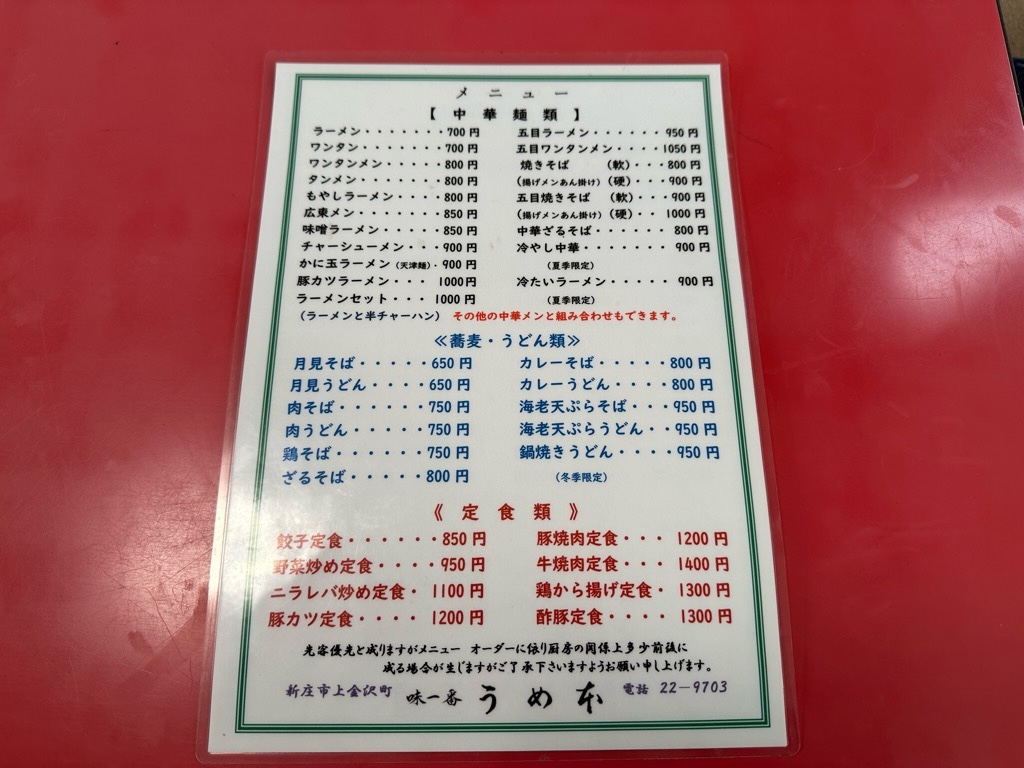 メニュー
【中華麺類】
ラーメン・・・・・・・700円
ワンタン・・・・・・・700円
ワンタンメン・・・・・800円
タンメン・・・・・・・800円
もやしラーメン・・・・800円
広東メン・・・・・・・850円
味噌ラーメン・・・・・850円
チャーシューメン・・・900円
かに玉ラーメン(天津麺)・900円
豚カツラーメン・・・1000円
ラーメンセット・・・1000円
(ラーメンと半チャーハン)
五目ラーメン・・・・・・950円
五目ワンタンメン・・・・1050円
焼きそば (軟)・・・800円
(揚げメンあん掛け)(硬)・・・900円
五目焼きそば (軟)・・・900円
(揚げメンあん掛け)(硬)・・1000円
中華ざるそば・・・・・・800円
冷やし中華・・・・・・・900円
(夏季限定)
冷たいラーメン・・・・・900円
(夏季限定)
その他の中華メンと組み合わせもできます。
≪蕎麦・うどん類≫
月見そば・・・・・650円
月見うどん・・・・650円
肉そば・・・・・・750円
肉うどん・・・・・750円
鶏そば・・・・・・750円
ざるそば・・・・・800円
カレーそば・・・・・800円
カレーうどん・・・・800円
海老天ぷらそば・・・950円
海老天ぷらうどん・・950円
鍋焼きうどん・・・・950円
(冬季限定)
《定食類》
餃子定食・・・・・・850円
野菜炒め定食・・・・950円
ニラレバ炒め定食・1100円
豚カツ定食・・・・1200円
豚焼肉定食・・・1200円
牛焼肉定食・・・1400円
鶏から揚げ定食・1300円
酢豚定食・・・・1300円
先客優先と成りますがメニュー オーダーに依り厨房の関係上多少前後に
成る場合が生じますがご了承下さいますようお願い申し上げます。
新庄市上金沢町 味一番 うめ本 電話 22-9703